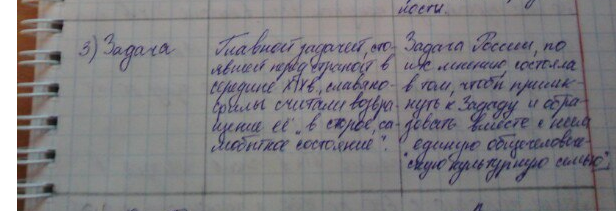 ности.
3) Задача
Главной задачей, сто-
явшей перед страной в
середине XIXв, славяно-
филы считали возвра-
щение её „в старое, са-
мобытное состояние".
Задача России, по
их мнению состояла
в том, чтобы примк-
нуть к Западу и обра-
зовать вместе с ним
"единую общечеловече-
скую культурную семью"